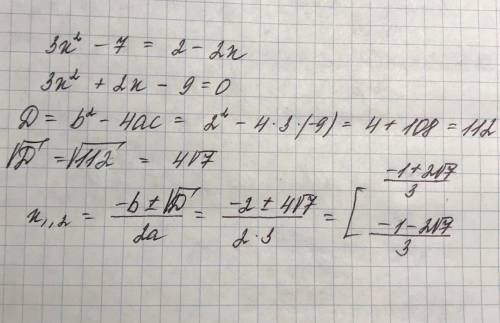 3x² - 7 = 2 - 2x
3x² + 2x - 9 = 0
D = b² - 4ac = 2² - 4·3·(-9) = 4 + 108 = 112
√D = √112 = 4√7
x₁,₂ = (-b ± √D)/(2a) = (-2 ± 4√7)/(2·3) = [ (-1 + 2√7)/3
(-1 - 2√7)/3